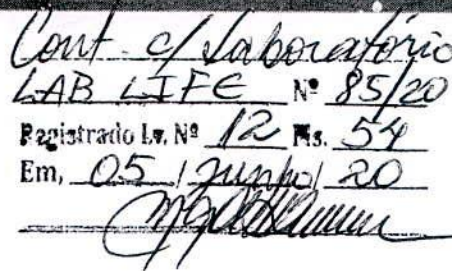 Cont. c/ Laboratório
LAB LIFE Nº 85/20
Registrado Lv. Nº 12 Fls. 54
Em, 05 / Junho / 20